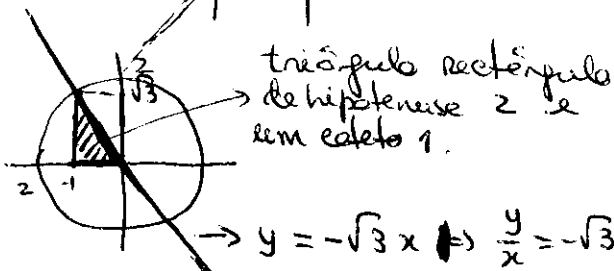 2
√3
triângulo rectângulo
de hipotenuse 2 e
um cateto 1.
2 -1
→ y = -√3 x ⇔ y/x = -√3